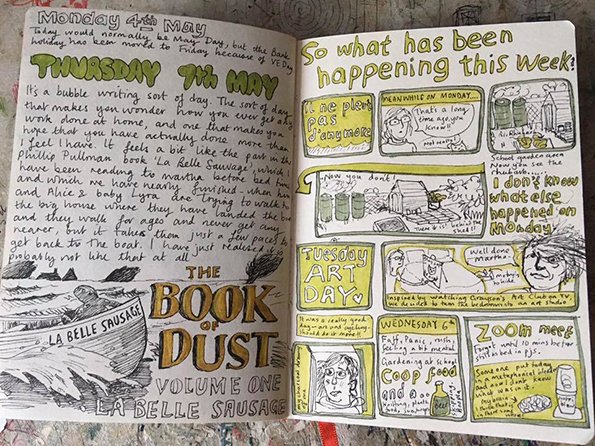 Monday 4th May
Today would normally be May Day, but the Bank
holiday has been moved to Friday because of VE Day
THURSDAY 7th MAY
It's a bubble writing sort of day. The sort of day
that makes you wonder how you ever get any
work done at home, and one that makes you
hope that you have actually done more than
I feel I have. It feels a bit like the part in the
Phillip Pullman book 'La Belle Sauvage', which I
have been reading to Martha before bed time
and which we have nearly finished - when him
and Alice & baby Lyra are trying to walk to
the big house where they have landed the boat
and they walk for ages and never get any
nearer, but it takes them just a few paces to
get back to the boat. I have just realised it is
probably not like that at all.
THE
BOOK
OF
DUST
LA BELLE SAUSAGE
VOLUME ONE
LA BELLE SAUSAGE
So what has been
happening this week?
il ne pleut
pas
d'anymore
MEANWHILE ON MONDAY
That's a long
time ago, you
know!!
School garden area
Now you see the
rhubarb.....
Now you don't!
There it is! behind
I don't know
what else
happened on
Monday
Tuesday
ART
DAY
Well done
Martha
Inspired by watching Grayson's Art Club on TV,
we decided to turn the bedroom into an art studio
It was a really good
day - art and cycling.
Should do it more!!
WEDNESDAY 6th
Faff, Panic, rush
feeling a bit mental
Gardening at school
Coop food
and
Zoom meet
Forgot until 10 mins before
still in bed in pjs.